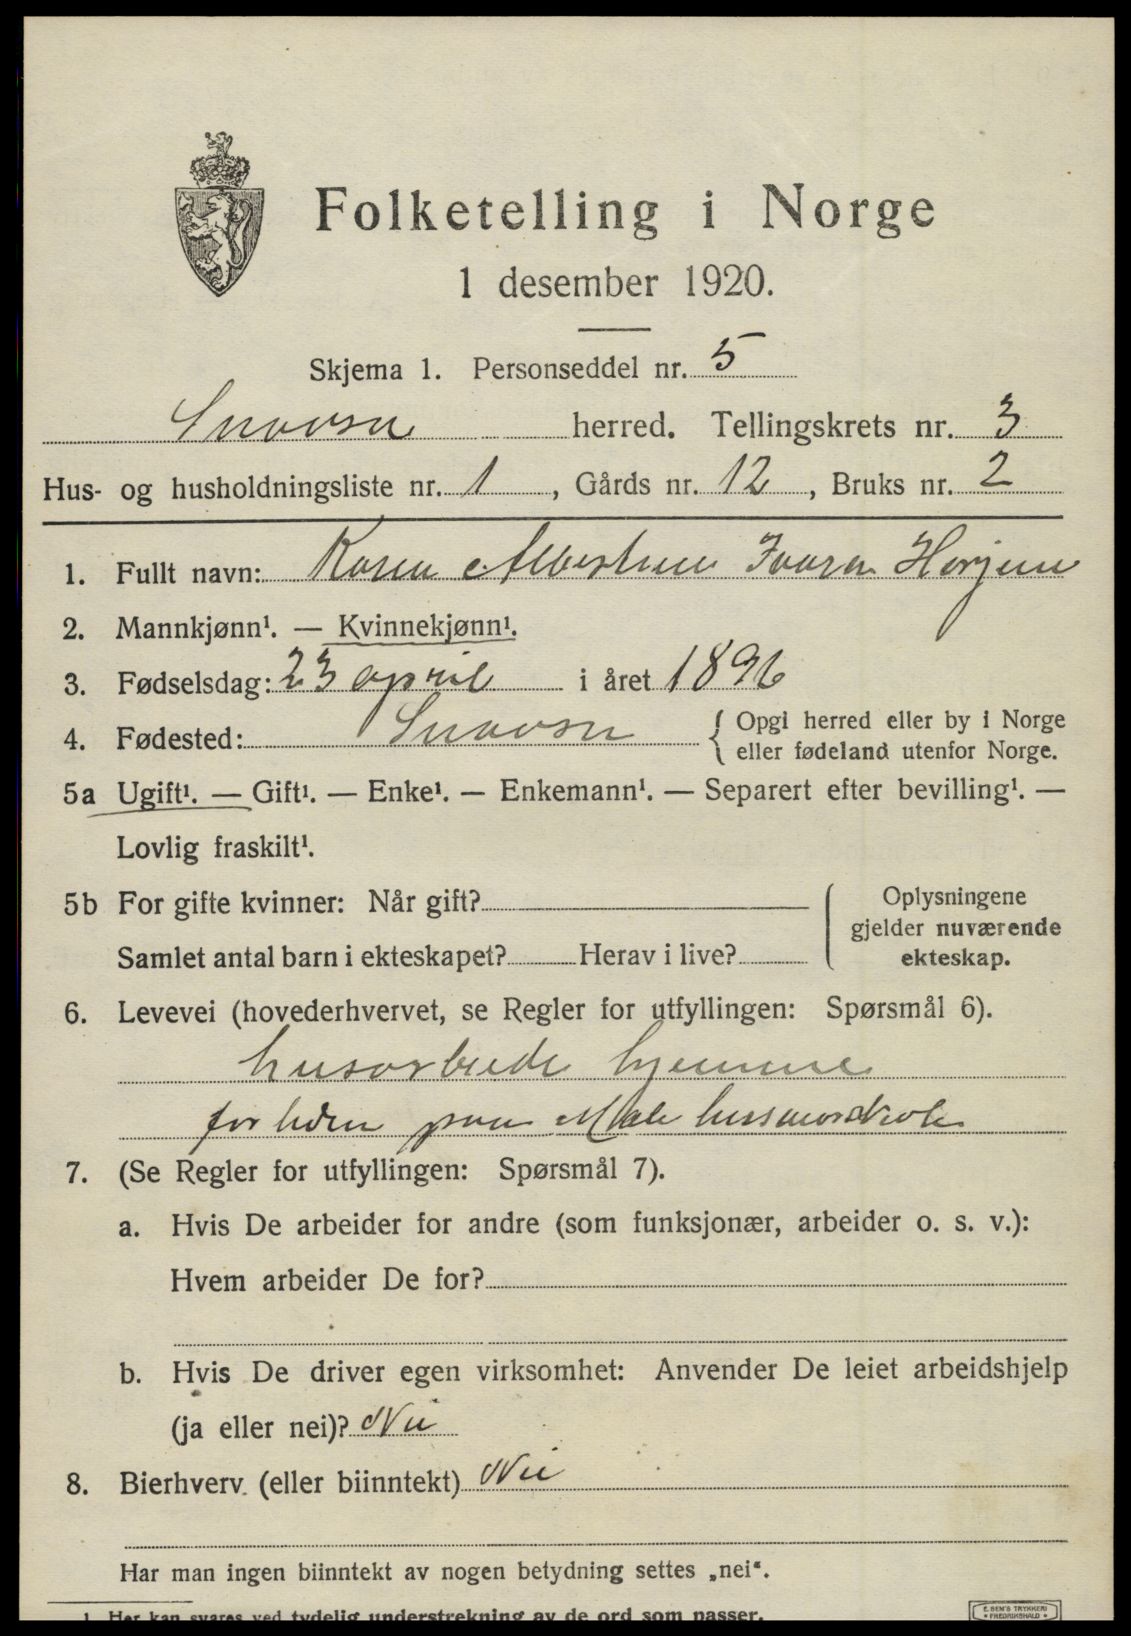 Folketelling i Norge
1 desember 1920.
Skjema 1. Personseddel nr. 5
Snaasa herred. Tellingskrets nr. 3
Hus- og husholdningsliste nr. 1, Gårds nr. 12, Bruks nr. 2
1. Fullt navn: Karen Albertine
2. Mannkjønn¹. — Kvinnekjønn¹.
3. Fødselsdag: 23 april i året 1896
4. Fødested: Snaasa { Opgi herred eller by i Norge
eller fødeland utenfor Norge.
5a Ugift¹. — Gift¹. — Enke¹. — Enkemann¹. — Separert efter bevilling¹. —
Lovlig fraskilt¹.
5b For gifte kvinner: Når gift?
Samlet antal barn i ekteskapet? Herav i live?
Oplysningene
gjelder nuværende
ekteskap.
6. Levevei (hovederhvervet, se Regler for utfyllingen: Spørsmål 6).
husarbeide hjemme
for tiden paa husmorskole
7. (Se Regler for utfyllingen: Spørsmål 7).
a. Hvis De arbeider for andre (som funksjonær, arbeider o. s. v.):
Hvem arbeider De for?
b. Hvis De driver egen virksomhet: Anvender De leiet arbeidshjelp
(ja eller nei)? Nei
8. Bierhverv (eller biinntekt) Nei
Har man ingen biinntekt av nogen betydning settes „nei“.
1. Her kan svares ved tydelig understrekning av de ord som passer.
E. SEM'S TRYKKERI
• FREDRIKSHALD •